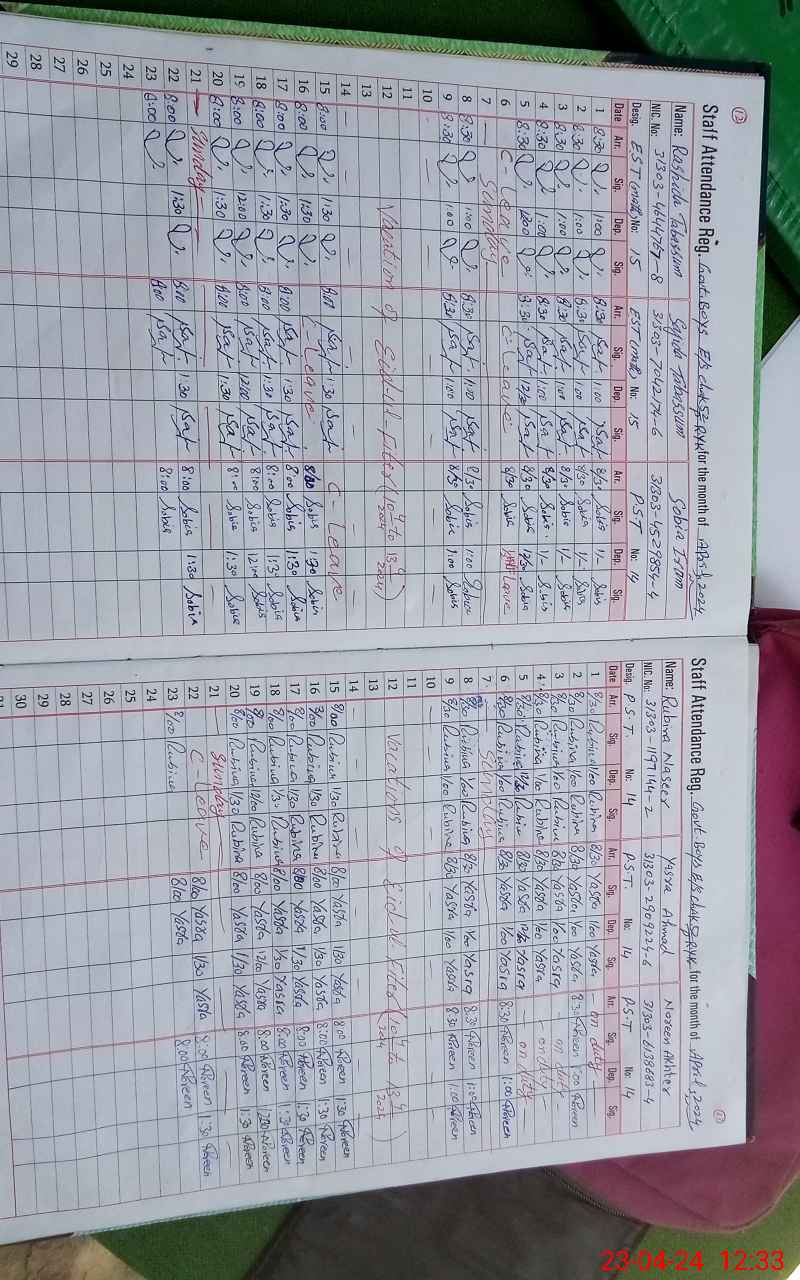 Staff Attendance Reg. Govt. Boys E/S chak 52 RYK for the month of April, 2024
Name: Rashida Tabassum Sajida Tabassum Sobia Islam
NIC. No: 31303-7042174-6 31303-4529854-4
Desig. EST (math) No: 15 EST (math) No: 15 PST No: 14
Date Arr. Sig. Dep. Sig. Arr. Sig. Dep. Sig. Arr. Sig. Dep. Sig.
1 8:30 1:00 8:30 1:00 8/30 Sobia 1/- Sobia
2 8:30 1:00 8:30 1:00 8/30 Sobia 1/- Sobia
3 8:30 1:00 8:30 1:00 8/30 Sobia 1/- Sobia
4 8:30 1:00 8:30 1:00 8/30 Sobia 1/- Sobia
5 8:30 12:00 8:30 8/30 Sobia 12/30 Sobia
6 C-Leave C-Leave 8/30 Sobia Leave
7 Sunday
8 8:30 1:00 8:30 1:00 8/30 Sobia 1:00 Sobia
9 8:30 1:00 8:30 1:00 8/30 Sobia 1:00 Sobia
10
11
12 Vacation of Eid-Ul-Fiter (10-4 to 13-4 2024)
13
14
15 8:00 1:30 8:00 1:30 C-Leave
16 8:00 1:30 C-Leave 8/00 Sobia 1:30 Sobia
17 8:00 1:30 8:00 1:30 8:00 Sobia 1:30 Sobia
18 8:00 1:30 8:00 1:30 8:00 Sobia 1:30 Sobia
19 8:00 12:00 8:00 12:00 8:00 Sobia 12:00 Sobia
20 8:00 1:30 8:00 1:30 8:00 Sobia 1:30 Sobia
21 Sunday
22 8:00 1:30 8:00 1:30 8:00 Sobia 1:30 Sobia
23 8:00 8:00 8:00 Sobia
24
25
26
27
28
29
Staff Attendance Reg. Govt. Boys E/S chak 52 RYK for the month of April, 2024
Name: Rubina Naseer Yasra Ahmad Noreen Akhter
NIC. No: 31303-1197144-2 31303-2909224-6 31303-6138683-4
Desig. P.S.T. No: 14 P.S.T. No: 14 P.S.T No: 14
Date Arr. Sig. Dep. Sig. Arr. Sig. Dep. Sig. Arr. Sig. Dep. Sig.
1 8/30 Rubina 1/00 Rubina 8/30 Yasra 1/00 Yasra - on duty -
2 8/30 Rubina 1/00 Rubina 8/30 Yasra 1/00 Yasra 8:30 Noreen 1:00 Noreen
3 8/30 Rubina 1/00 Rubina 8/30 Yasra 1/00 Yasra - on duty -
4 8/30 Rubina 1/00 Rubina 8/30 Yasra 1/00 Yasra - on duty -
5 8/30 Rubina 12/30 Rubina 8/30 Yasra Yasra - on duty -
6 8/30 Rubina 1/00 Rubina 8/30 Yasra 1/00 Yasra 8:30 Noreen 1:00 Noreen
7 Sunday
8 8/30 Rubina 1/00 Rubina 8/30 Yasra 1/00 Yasra 8:30 Noreen 1:00 Noreen
9 8/30 Rubina 1/00 Rubina 8/30 Yasra 1/00 Yasra 8:30 Noreen 1:00 Noreen
10
11
12 Vacations of Eid-Ul-Fiter (10-4 to 13-4 2024)
13
14
15 8/00 Rubina 1/30 Rubina 8/00 Yasra 1/30 Yasra 8:00 Noreen 1:30 Noreen
16 8/00 Rubina 1/30 Rubina 8/00 Yasra 1/30 Yasra 8:00 Noreen 1:30 Noreen
17 8/00 Rubina 1/30 Rubina 8/00 Yasra 1/30 Yasra 8:00 Noreen 1:30 Noreen
18 8/00 Rubina 1/30 Rubina 8/00 Yasra 1/30 Yasra 8:00 Noreen 1:30 Noreen
19 8/00 Rubina 12/00 Rubina 8/00 Yasra 12/00 Yasra 8:00 Noreen 12:00 Noreen
20 8/00 Rubina 1/30 Rubina 8/00 Yasra 1/30 Yasra 8:00 Noreen 1:30 Noreen
21 Sunday
22 C-Leave 8/00 Yasra 1/30 Yasra 8:00 Noreen 1:30 Noreen
23 8/00 Rubina 8/00 Yasra 8:00 Noreen
24
25
26
27
28
29
30
23-04-24 12:33